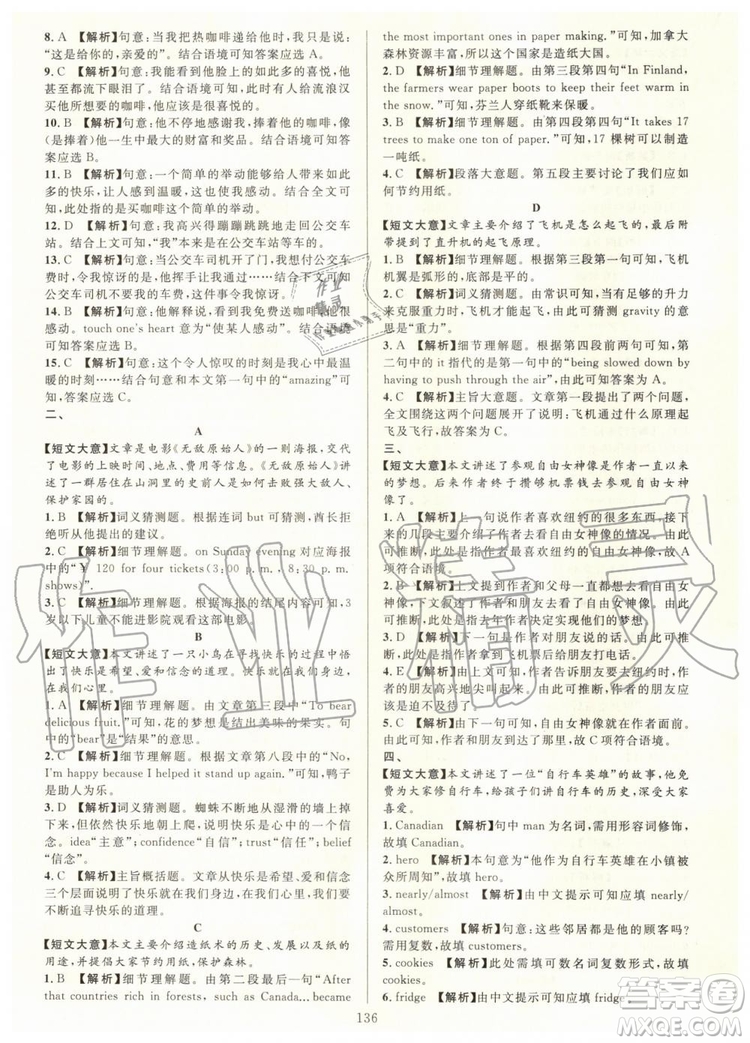 8. A 【解析】句意：当我把热咖啡递给他时，我说：
“这是给你的，亲爱的”。结合语境可知答案应选 A。
9. C 【解析】句意：我能看出他脸上的如此多的喜悦，他
甚至都流下眼泪了。结合语境可知，作者在给流浪汉
买他想喝的咖啡，他是很高兴的。
10. B 【解析】句意：他不停地感谢我，捧着的咖啡，像
(是捧着)他一生中最大的财富和奖品。结合语境可知
答案应选 B。
11. B 【解析】句意：一个简单的一个举动能够给他带来如
此多的快乐，让他感到温暖，这也温暖了我。结合全文可
知，此处指的是买咖啡这个简单的举动。
12. D 【解析】句意：我高兴得蹦蹦跳跳地走回公交车
站。结合上文可知，“我”本来在公交车站等车的。
13. C 【解析】句意：当公交车司机开门，我将要付公交车
费时，令我惊讶的是，他挥手让我过去……结合下文可知
公交车司机不要我的车费，因此令我惊讶。
14. B 【解析】句意：他解释说，看到我免费送人咖啡他很
感动。touch one's heart 意为“使某人感动”。结合语境
可知答案应选 B。
15. C 【解析】句意：这个令人惊叹的时刻是我心中最温
暖的时刻……结合句意和本文第一句中的“amazing”可
知，答案应选 C。
二、
A
【短文大意】文章是电影《无敌原始人》的一则海报，交代
了电影的上映时间、地点、费用等。《无敌原始人》讲述
了一群居住在山洞里的史前人怎样抵抗强大敌人、
保护家园的。
1. B 【解析】词义猜测题。根据连词 but 可知，酋长拒
绝听从他所提出的建议。
2. C 【解析】细节理解题。on Sunday evening 对应海报
中的“￥ 120 for four tickets(3:00 p. m. , 8:30 p. m.
shows)”。
3. B 【解析】细节理解题。根据海报的结尾内容可知，3
岁以下儿童不能进影院观看这部电影。
B
【短文大意】文章讲述了一只小鸟在寻找快乐的过程中悟
出了快乐是希望、梦想、爱和信念的道理。快乐就在我们身
边，在我们自己心中。
1. A 【解析】细节理解题。由文章第三段的“To bear
delicious fruit.”可知，花的梦想是结出美味的果实。句
中的“bear”是“结果”的意思。
2. C 【解析】细节理解题。根据文章第八段中的“No,
I'm happy because I helped it stand up again.”可知，鸭子
是助人为乐。
3. D 【解析】词义猜测题。蜘蛛不断地从湿滑的墙上掉
下来，又不断地继续往上爬，它的快乐来自于心中的一个信
念。idea“主意”；confidence“自信”；trust“信任”；belief
“信念”。
4. C 【解析】主旨大意题。文章从快乐是希望、爱和信念
三个层面阐述了快乐就在我们身边，在我们心中，我们要
不断去追寻快乐的道理。
C
【短文大意】本文主要介绍造纸术的历史、发展以及纸的
的用途，并提倡大家节约用纸，保护森林。
1. B 【解析】细节理解题。由第二段最后一句“After
that countries rich in forests, such as Canada...became
the most important ones in paper making.”可知，加拿大
森林资源丰富，所以这个国家是造纸大国。
2. D 【解析】细节理解题。由第三段第四句“In Finland,
the farmers wear paper boots to keep their feet warm in
the snow.”可知，芬兰人穿纸靴来保暖。
3. A 【解析】细节理解题。由第四段第四句“It takes 17
trees to make one ton of paper.”可知，17 棵树可以制造
一吨纸。
4. C 【解析】段落大意题。第五段主要讨论了我们应如
何节约用纸。
D
【短文大意】文章主要介绍了飞机是怎么起飞的，最后附
带提到了直升机的起飞原理。
1. B 【解析】细节理解题。由第三段第一句可知，飞机
机翼是弧形的，底部是平的。
2. D 【解析】词义猜测题。由常识可知，当有足够的升力
来克服重力时，飞机才能起飞，由此可猜测 gravity 的意
思是“重力”。
3. A 【解析】细节理解题。由第四段前两句可知，第
二句中的 it 指代的是第一句中的“being slowed down by
having to push through the air”，由此可知答案为 A。
4. C 【解析】主旨大意题。文章第一段提出了两个问题，
全文围绕这两个问题展开了说明：飞机可以通过升力起
飞及飞行。故答案为 C。
三、
【短文大意】本文讲述了参观自由女神像是作者一直以来
的梦想。最后，作者终于攒够机票钱去参观了自由
女神像。
1. A 【解析】上一句说作者喜欢纽约的很多东西，接下
来的几段主要讲了作者想看自由女神像的情况。由此
可推断，此处应是说作者最想看的是自由女神像，故 A
项符合语境。
2. B 【解析】上文提到作者和父母一直想一起去看自由女神
像，由下文可知，作者和朋友去看了自由女神像，由此可
推断，此处指去年作者决定实现他们的梦想。
3. D 【解析】由下文作者对朋友说的话可知，此处
是指作者拿到飞机票后给朋友打电话。
4. E 【解析】由上文可知，作者告诉朋友要去纽约了，作
者的朋友高兴地尖叫起来。由此可推断，他们应该
是迫不及待了。
5. C 【解析】由下一句可知，自由女神像在这个城市最
高处，作者和朋友到达那里，故 C 项符合语境。
四、
【短文大意】本文讲述了一位“自行车英雄”的故事，他免
费修自行车，给孩子们讲述自己的经历，深受大家
喜爱。
1. Canadian 【解析】句中 man 为名词，需用形容词修饰，
故填 Canadian。
2. hero 【解析】本句意为“他作为自行车英雄在小镇被
众所周知”。故填 hero。
3. nearly/almost 【解析】由中文提示可知应填 nearly/
almost。
4. customers 【解析】句意：这些邻居都是他的顾客！
需用复数，故填 customers。
5. cookies 【解析】此处需用可数名词复数形式，故填
cookies。
6. fridge 【解析】由中文提示可知应填 fridge。
136
作业精灵
答案圈